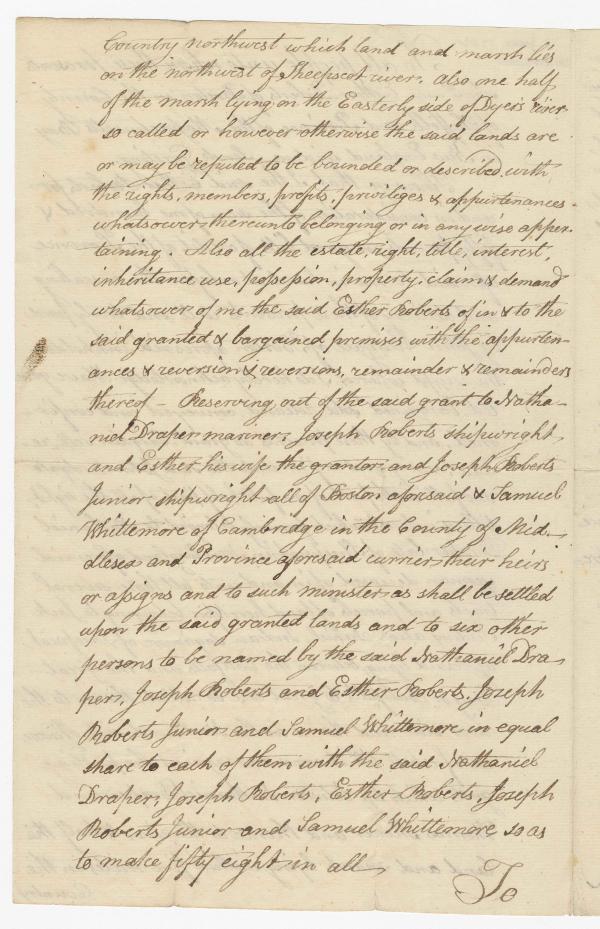 Country northwest which land and marsh lies
on the northwest of Sheepscot river. Also one half
of the marsh lying on the Easterly side of Dyer's river
so called or however otherwise the said lands are
or may be reputed to be bounded or described, with
the rights, members, profits, priviliges & appurtenances
whatsoever thereunto belonging or in any wise apper-
taining. Also all the estate, right, title, interest,
inheritance use, possession, property, claim & demand
whatsover of me the said Esther Roberts of in & to the
said granted & bargained premises with the appurten-
ances & reversion & reversions, remainder & remainders
thereof – Reserving out of the said grant to Natha-
niel Draper mariner, Joseph Roberts shipwright,
and Esther his wife the grantor and Joseph Roberts
Junior shipwright all of Boston aforesaid & Samuel
Whittemore of Cambridge in the County of Mid-
dlesex and Province aforesaid currier their heirs
or assigns and to such minister as shall be settled
upon the said granted lands and to six other
persons to be named by the said Nathaniel Dra-
per, Joseph Roberts and Esther Roberts, Joseph
Roberts Junior and Samuel Whittemore in equal
share to each of them with the said Nathaniel
Draper, Joseph Roberts, Esther Roberts, Joseph
Roberts Junior and Samuel Whittemore so as
to make fifty eight in all
To